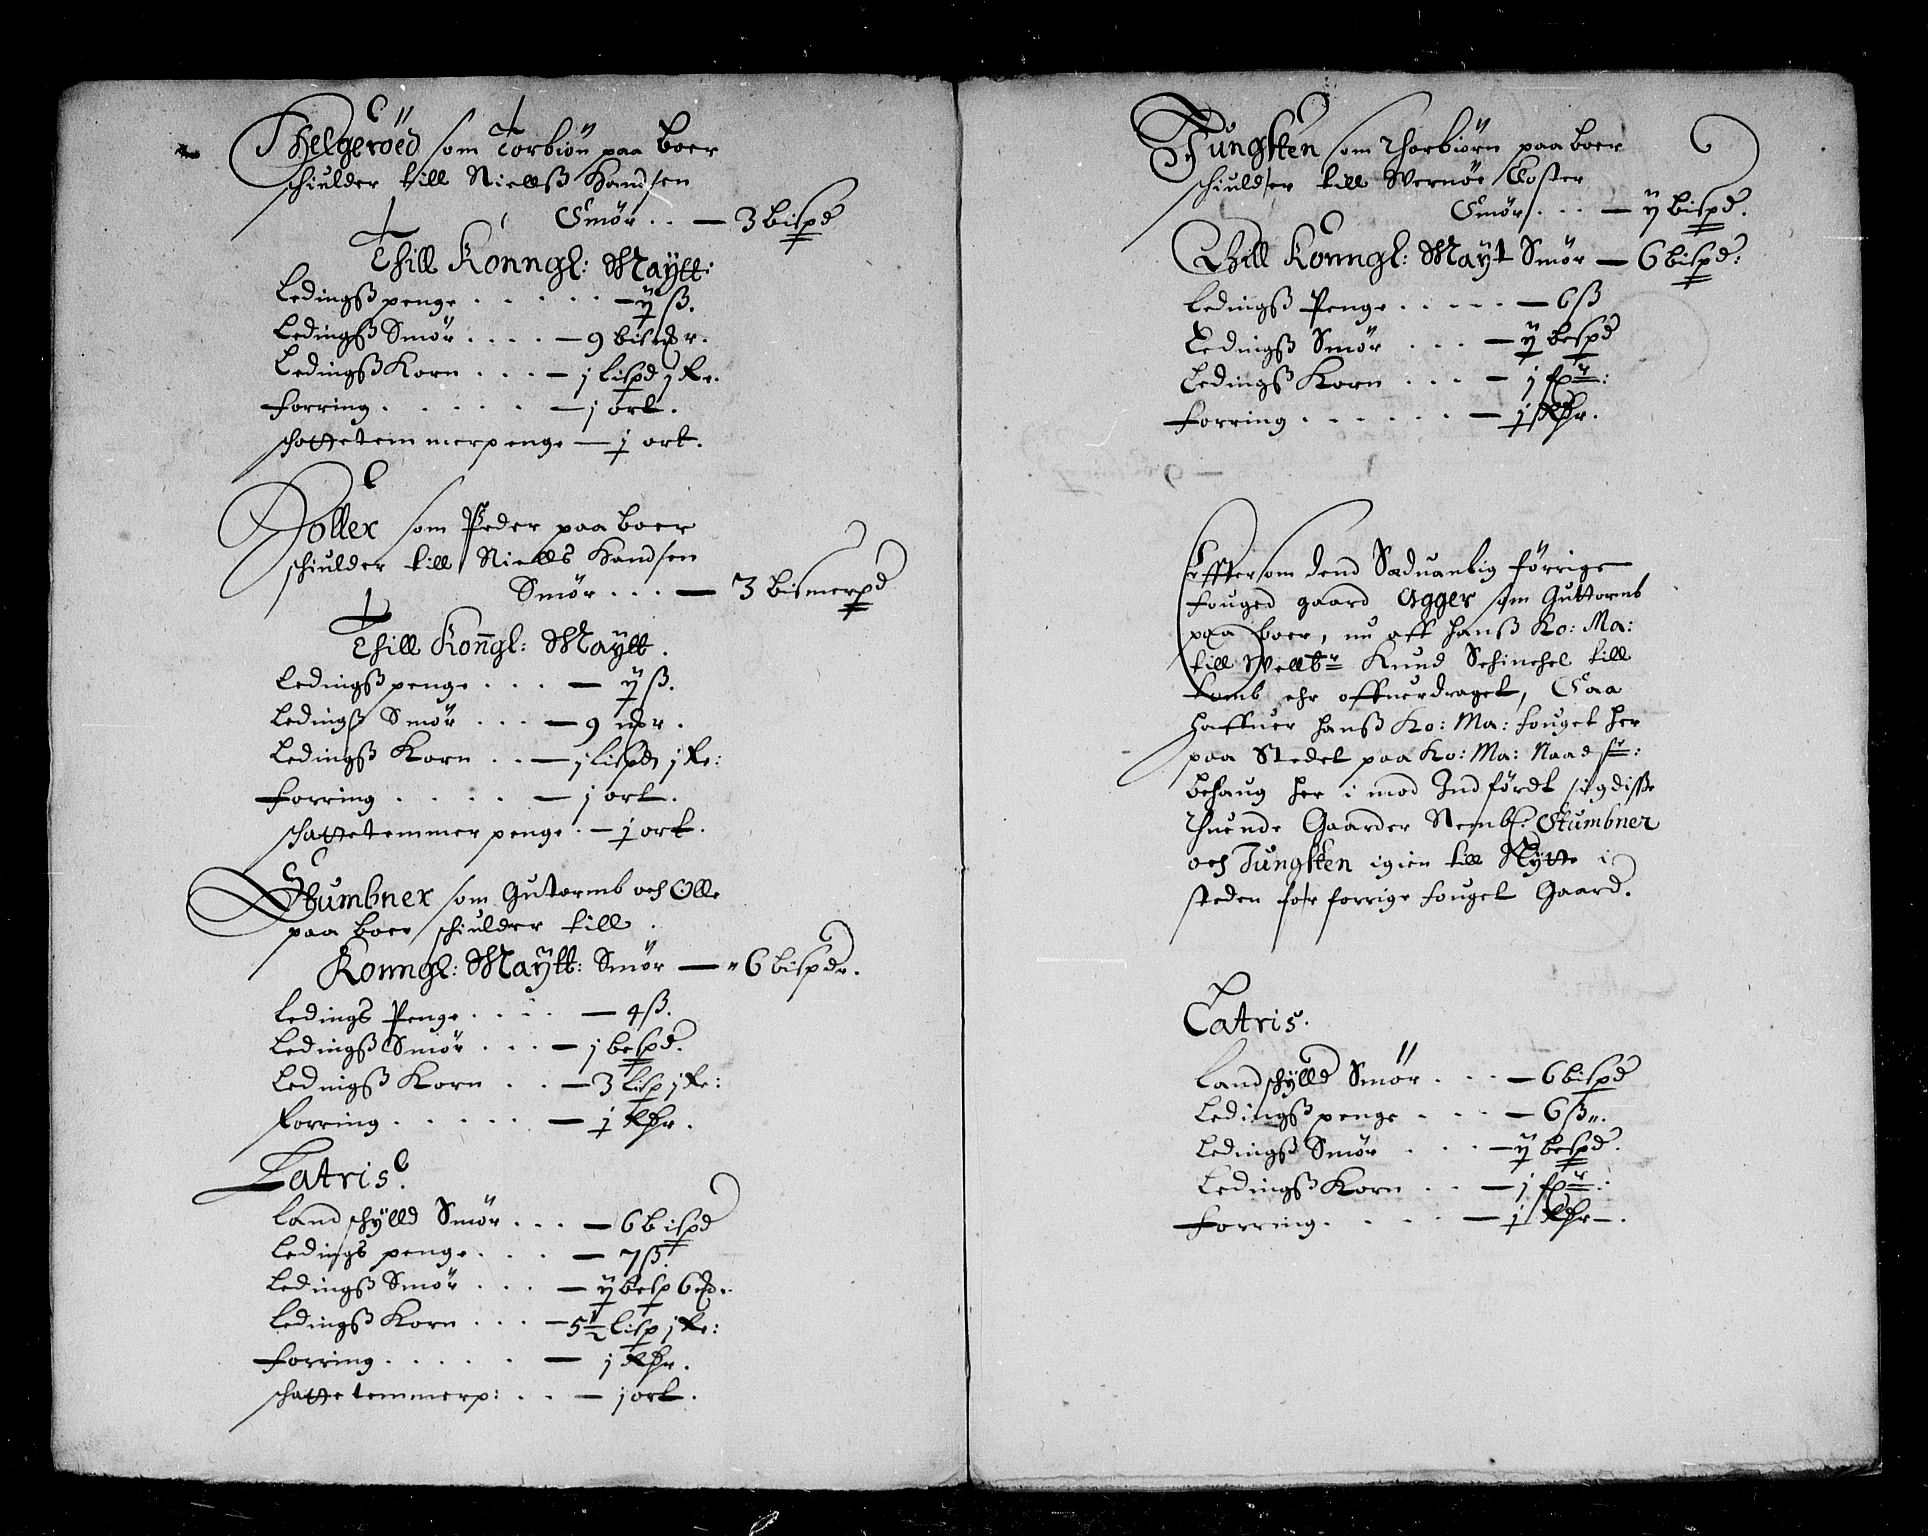 Helgeröed som Torbiön paa boer
schiulder till Niellß Handsen
Smör . . — 3 bispd
Thill Konngl: Maÿtt:
Ledingß penge . . . . . — ÿ ß.
Ledingß Smör . . . . — 9 bismpr.
Ledingß Korn . . . — j lispd j Re.
Forring . . . . . . — j ort.
schattetemmerpenge — j ort.
Doller som Peder paa boer
schiulder till Niells Handsen
Smör . . . — 3 bismerpd
Thill Kongl: Maÿtt.
Ledingß penge . . . — ÿ ß.
Ledingß Smör . . . — 9 mpr.
Ledingß Korn . . — j lispd j Re:
Forring . . . . . — j ort.
schattetemmer penge . — j ort.
Stumbner som Gutormb och Olle
paa boer schiulder till .
Konngl: Maÿtt: Smör — 6 bispdr.
Ledings Penge . . . . — 4 ß.
Ledingß Smör . . . — j bespd.
Ledingß Korn . . — 3 lisp j Re:
Forring . . . . . — j Rdr.
Latris.
Landschÿlld Smör . . . — 6 bispd
Ledings penge . . . — 7 ß.
Ledingß Smör . . . — ÿ besp 6 mr.
Ledingß Korn . . . — 5½ lisp j Re:
Forring . . . . . — j Rdr.
schattetemmerp: . . — j ort.
Jungkten som Thorbiörn paa boer
schiulder till Wernöe Closter
Smör . . . — ÿ bispd.
Thill Konngl: Mayt Smör — 6 bispd:
Ledingß Penge . . . . . — 6 ß
Ledingß Smör . . . — ÿ bespd
Ledingß Korn . . . — j
Forring . . . . . . — j Rdr.
Effttersom dend Sæduanlig förrige
fouged gaard Agger som Guttormb
paa boer, nu aff hanß Ko: Ma:
till Wellb: Knud Schinchel till
Tomb ehr offuerdraget, Saa
haffuer hanß Ko: Ma: fouget her
paa Stedet paa Ko: Ma: Naad
behaug her i mod Indfördt sig diße
Thuende Gaarder Nembl. Stumbner
och Jungkten igien till Nÿtte i
steden for forrige fouget Gaard.
Latris.
Landschÿlld Smör . . . — 6 bispd
Ledingß penge . . . — 6 ß.
Ledingß Smör . . . — ÿ bespd.
Ledingß Korn . . — j
Forring . . . . . — j Rdr —.